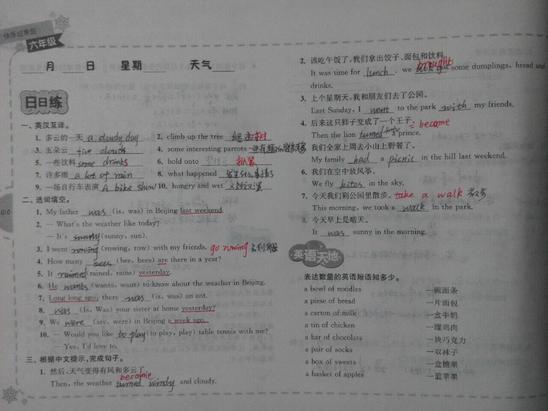 六年级
月 日 星期 天气
日日练
一、英汉互译。
1. 多云的一天 a cloudy day 2. climb up the tree
3. 五朵云 five clouds 4. some interesting parrots
5. 一些饮料 some drinks 6. hold onto 抓紧
7. 许多雨 a lot of rain 8. what happened
9. 一场自行车表演 A bike show 10. hungry and wet
二、选词填空。
1. My father was (is, was) in Beijing last weekend.
2. — What's the weather like today?
— It's sunny (sunny, sun).
3. I went rowing (rowing, row) with my friends. go rowing
4. How many bees (bee, bees) are there in a year?
5. It rained (rained, rains) yesterday.
6. He wants (wants, want) to know about the weather in Beijing.
7. Long long ago, there was (is, was) an ant.
8. Was (Is, Was) your sister at home yesterday?
9. We were (are, were) in Beijing a week ago.
10. — Would you like to play (to play, play) table tennis with me?
— Yes, I'd love to.
三、根据中文提示,完成句子。
1. 然后,天气变得有风和多云了。
became
Then, the weather turned windy and cloudy.
2. 该吃午饭了,我们拿出饺子、面包和饮料。
brought
It was time for lunch, we some dumplings, bread and
drinks.
3. 上个星期天,我和朋友们去了公园。
Last Sunday, I went to the park with my friends.
4. 后来这只狮子变成了一个王子。become
Then the lion turned prince.
5. 我们全家上周去小山上野餐了。
My family had a picnic in the hill last weekend.
6. 我们在空中放风筝。
We fly kites in the sky.
7. 今天我们到公园里散步。take a walk 散步
This morning, we took a walk in the park.
8. 今天早上是晴天。
It was sunny in the morning.
英语天地
表达数量的英语短语知多少。
a bowl of noodles 一碗面条
a piese of bread 一片面包
a carton of milk 一盒牛奶
a tin of chicken 一罐鸡肉
a bar of chocolats 一块巧克力
a pair of socks 一双袜子
a box of sweets 一盒糖果
a basket of apples 一篮苹果